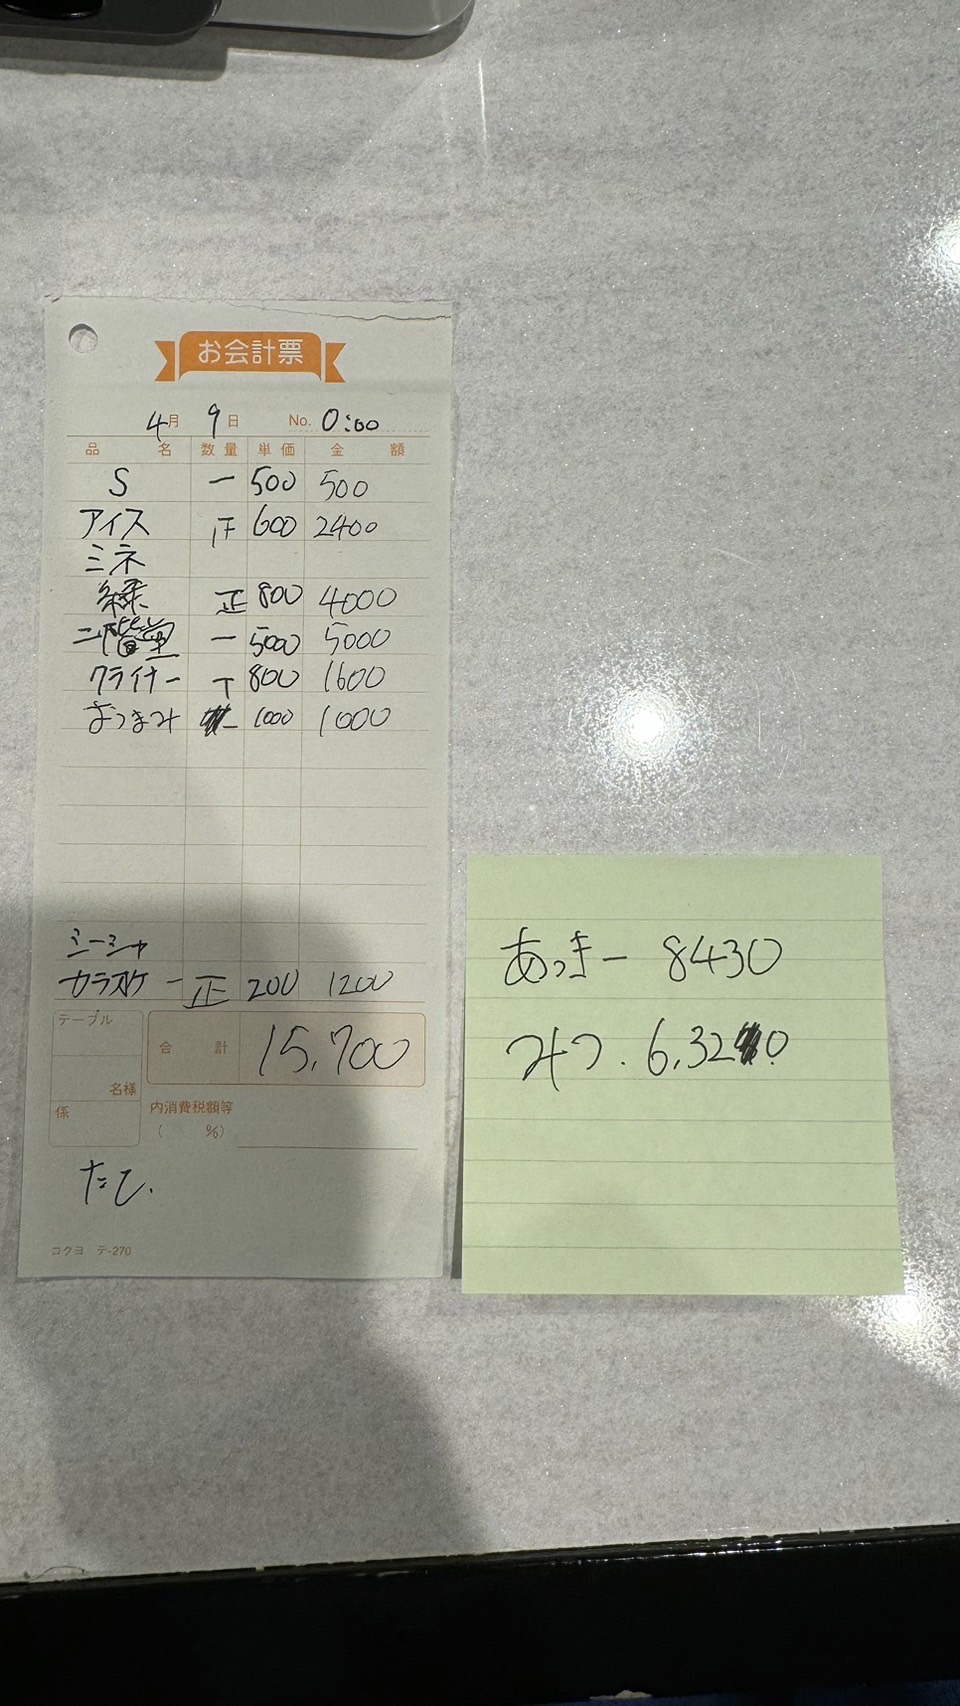 お会計票
4月 9日 No. 0:00
品名 数量 単価 金額
S 一 500 500
アイス 600 2400
ミネ
緑 正 800 4000
二階堂 一 5000 5000
クライナー T 800 1600
おつまみ 一 1000 1000
シーシャ
カラオケ 一正 200 1200
テーブル
合計 15,700
名様
係
内消費税額等
( %)
コクヨ テ-270
あっきー 8430
みつ. 6,320